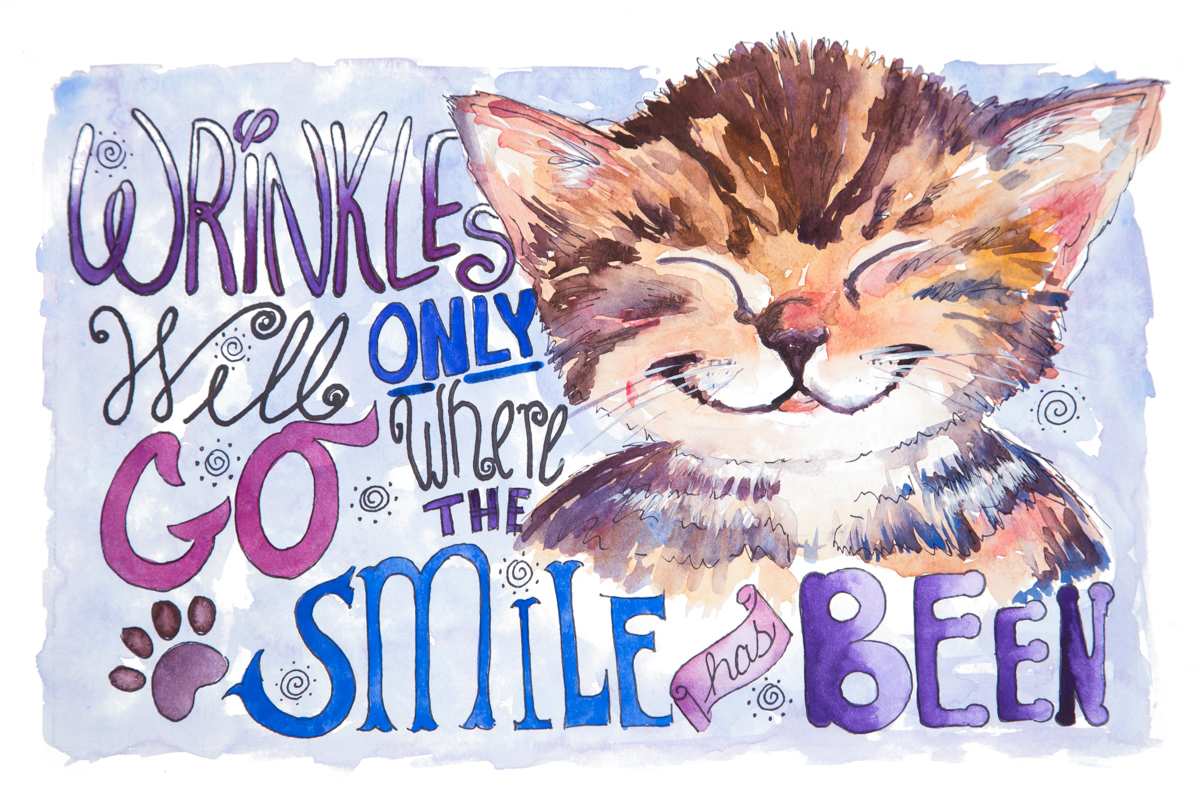 WRiNKLEs
Will ONLY
GO Where
THE
SMiLE has BEEN